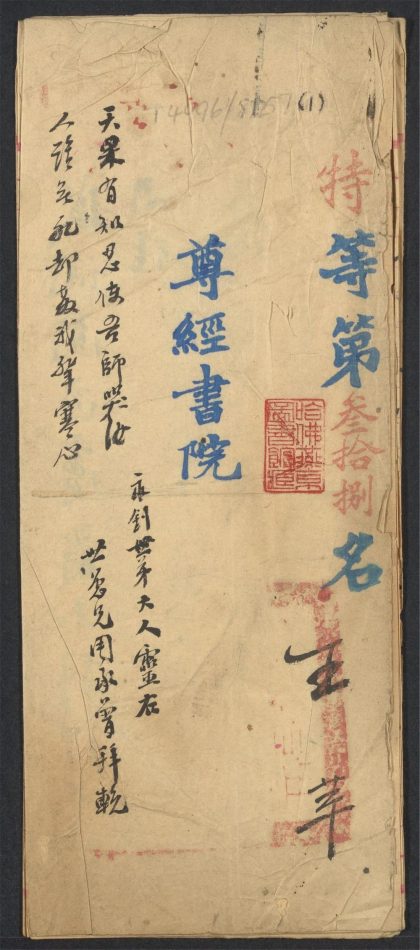 (1)
特等第叁拾捌名
王苹
尊經書院
哈佛燕京圖書館
天果有知忍使吾師哭汝
人難無死却教我輩寒心
永釗世弟大人靈右
世愚兄周承曾拜輓